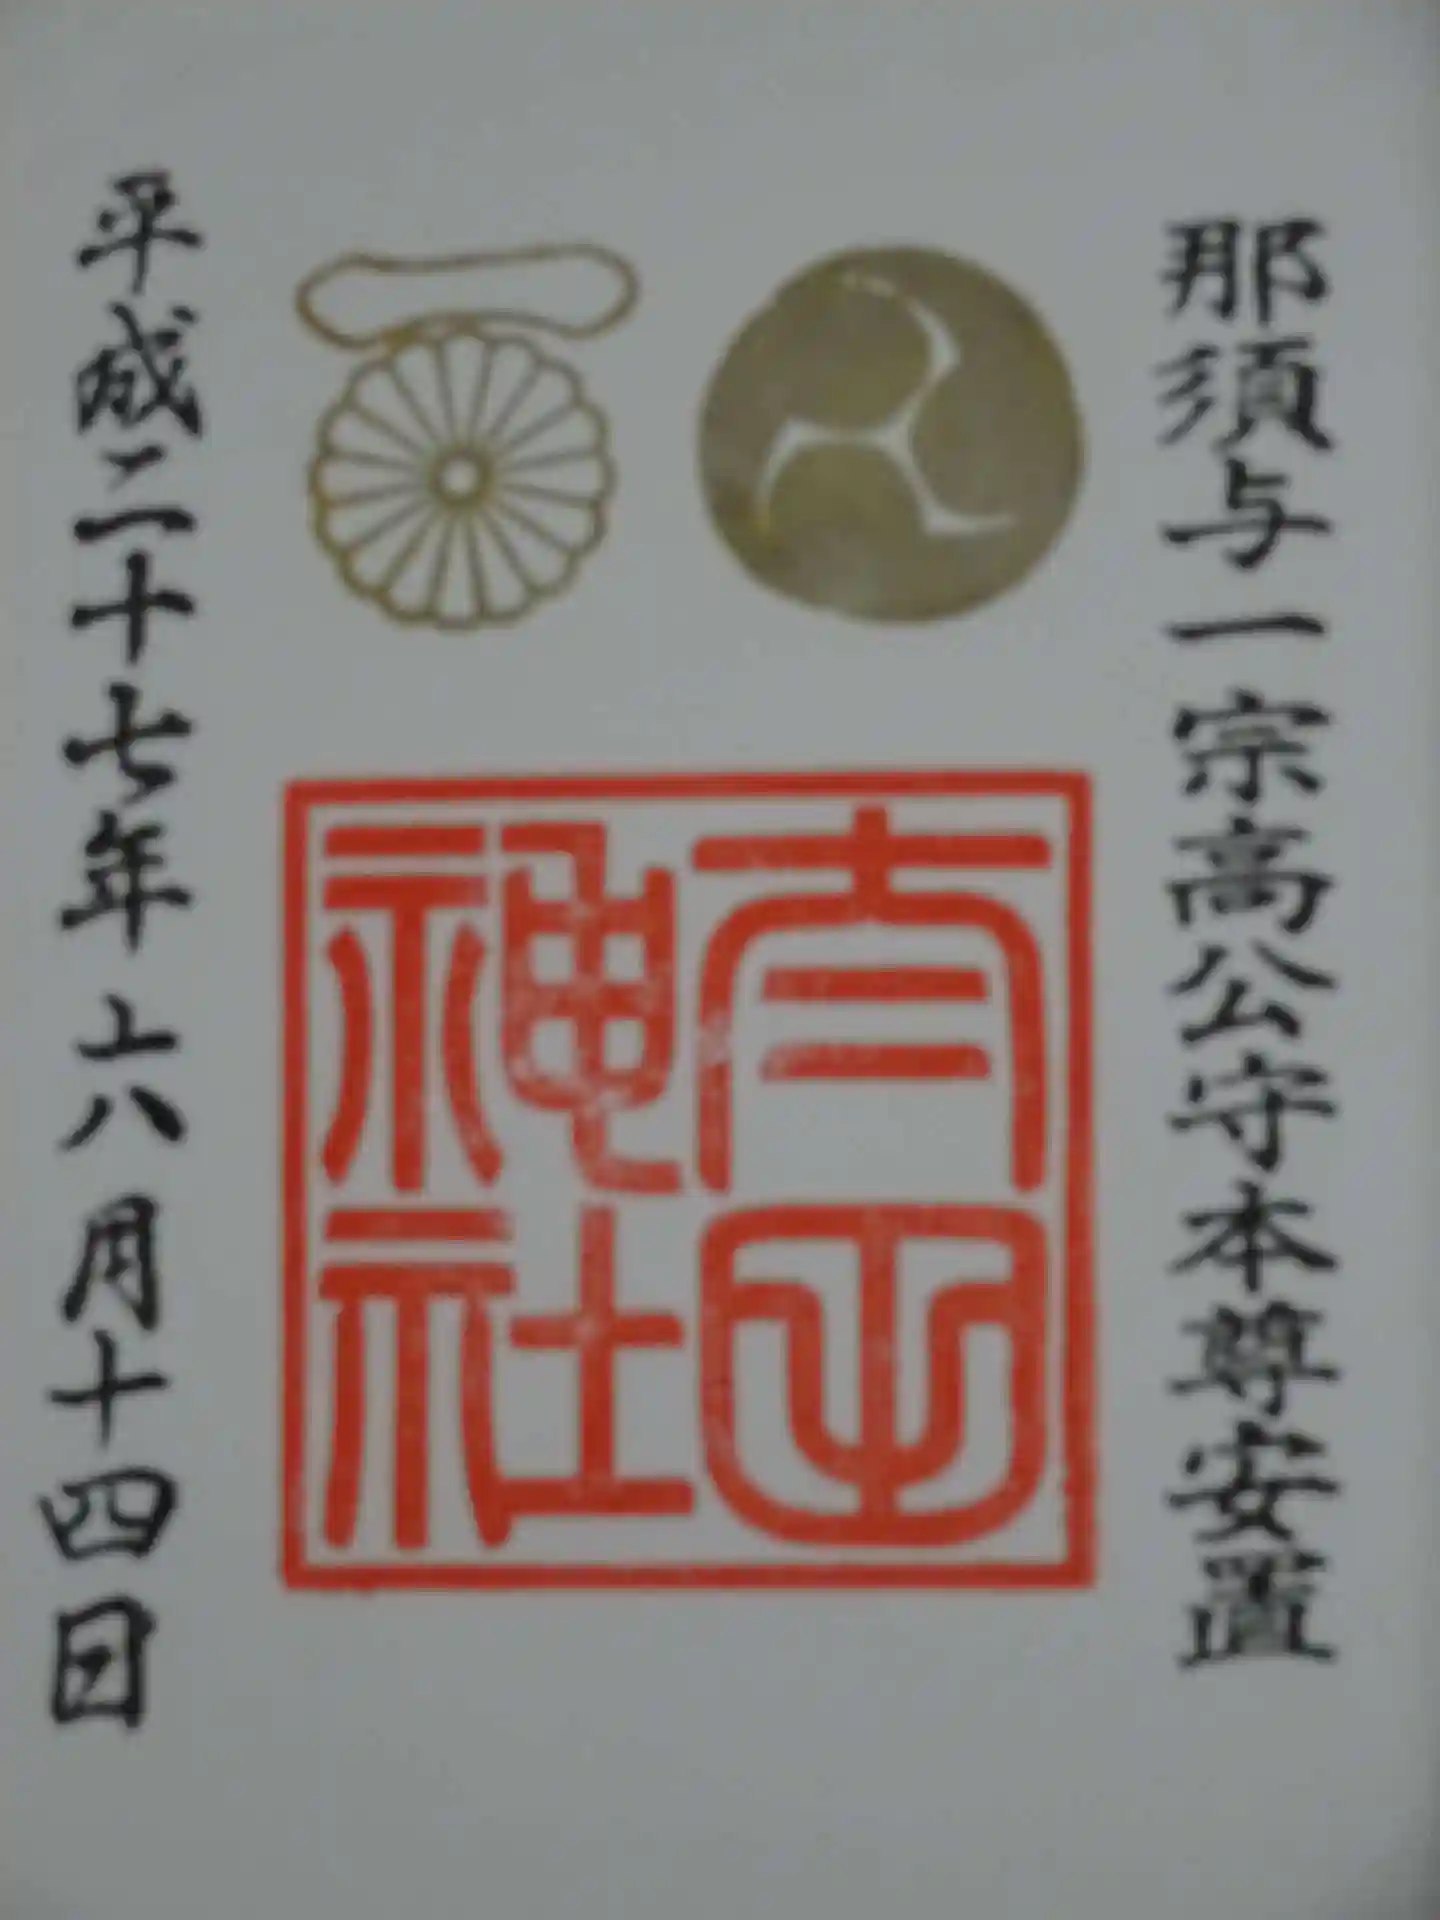 那須与一宗高公守本尊安置
神社
平成二十七年六月十四日